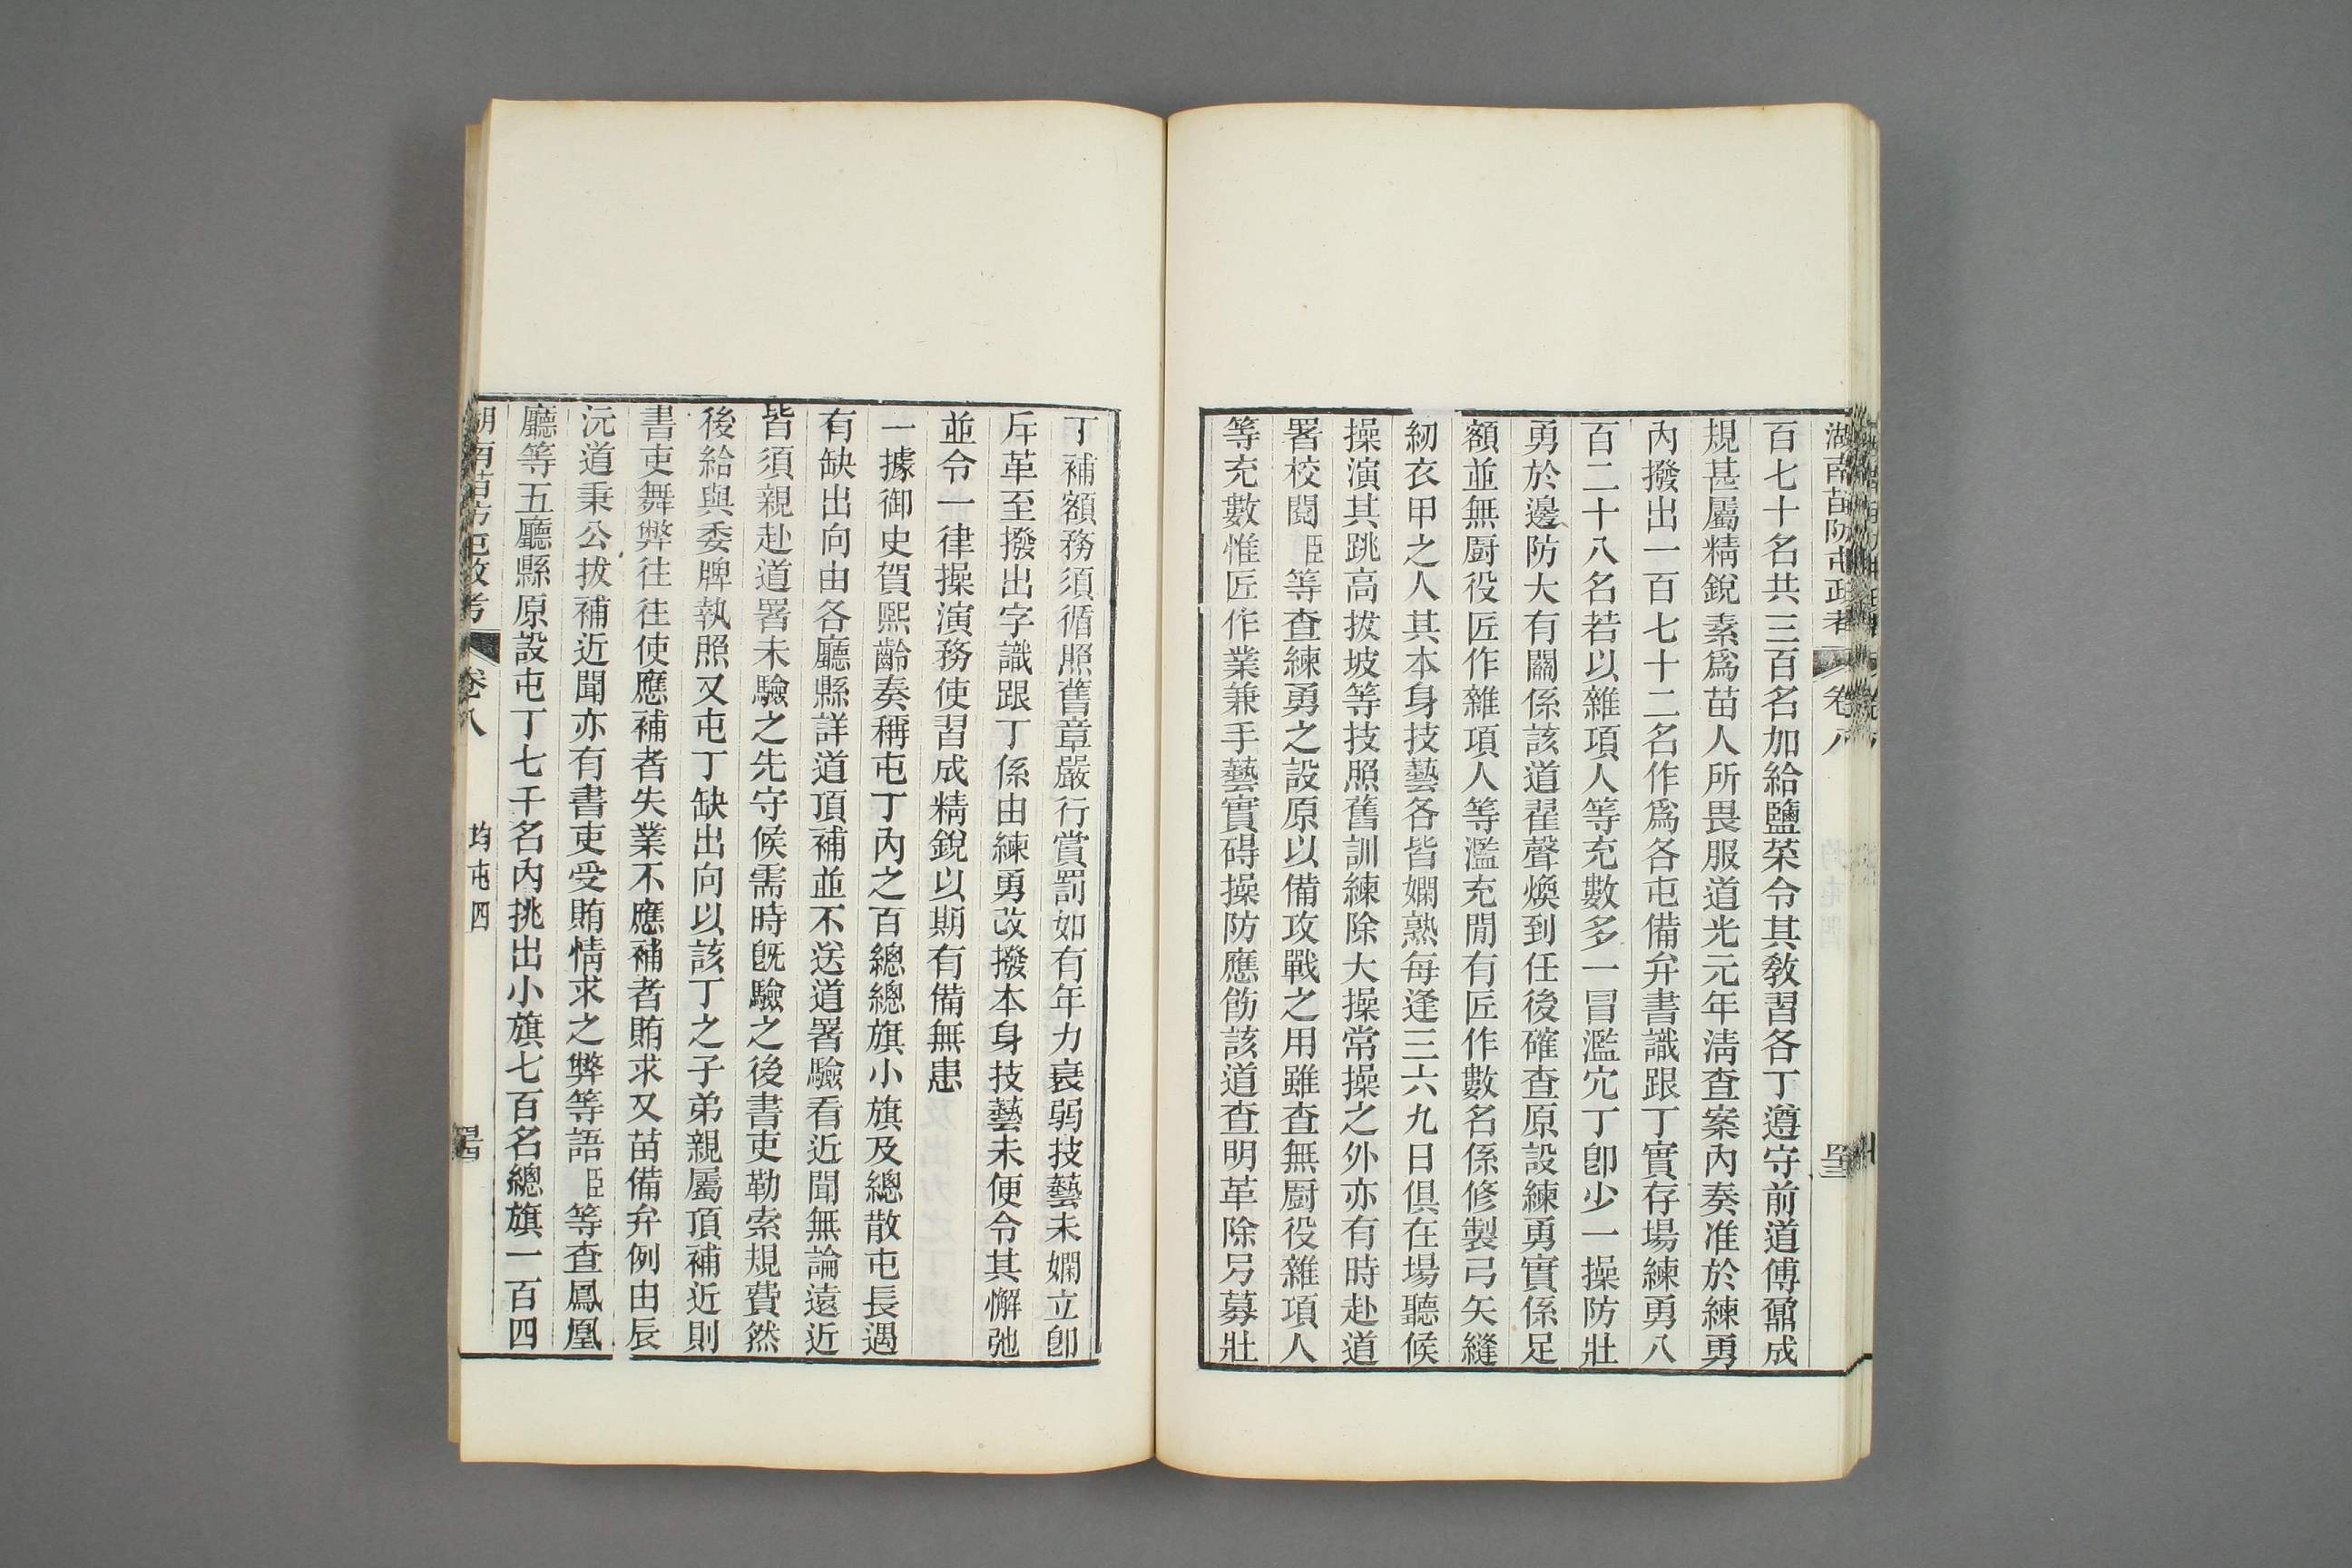 湖南苗防屯政考 卷八
百七十名共三百名加給鹽菜令其敎習各丁遵守前道傅鼐成
規甚屬精銳素爲苗人所畏服道光元年淸查案內奏准於練勇
內撥出一百七十二名作爲各屯備弁書識跟丁實存場練勇八
百二十八名若以雜項人等充數多一冒濫宂丁卽少一操防壯
勇於邊防大有關係該道翟聲煥到任後確查原設練勇實係足
額並無厨役匠作雜項人等濫充閒有匠作數名係修製弓矢縫
紉衣甲之人其本身技藝各皆嫻熟每逢三六九日俱在場聽候
操演其跳高拔坡等技照舊訓練除大操常操之外亦有時赴道
署校閱臣等查練勇之設原以備攻戰之用雖查無厨役雜項人
等充數惟匠作業兼手藝實碍操防應飭該道查明革除另募壯
丁補額務須循照舊章嚴行賞罰如有年力衰弱技藝未嫻立卽
斥革至撥出字識跟丁係由練勇改撥本身技藝未便令其懈弛
並令一律操演務使習成精銳以期有備無患
一據御史賀熙齡奏稱屯丁內之百總總旗小旗及總散屯長遇
有缺出向由各廳縣詳道頂補並不送道署驗看近聞無論遠近
皆須親赴道署未驗之先守候需時旣驗之後書吏勒索規費然
後給與委牌執照又屯丁缺出向以該丁之子弟親屬頂補近則
書吏舞弊往往使應補者失業不應補者賄求又苗備弁例由辰
沅道秉公拔補近聞亦有書吏受賄情求之弊等語臣等查鳳凰
廳等五廳縣原設屯丁七千名內挑出小旗七百名總旗一百四
湖南苗防屯政考 卷八 均屯四